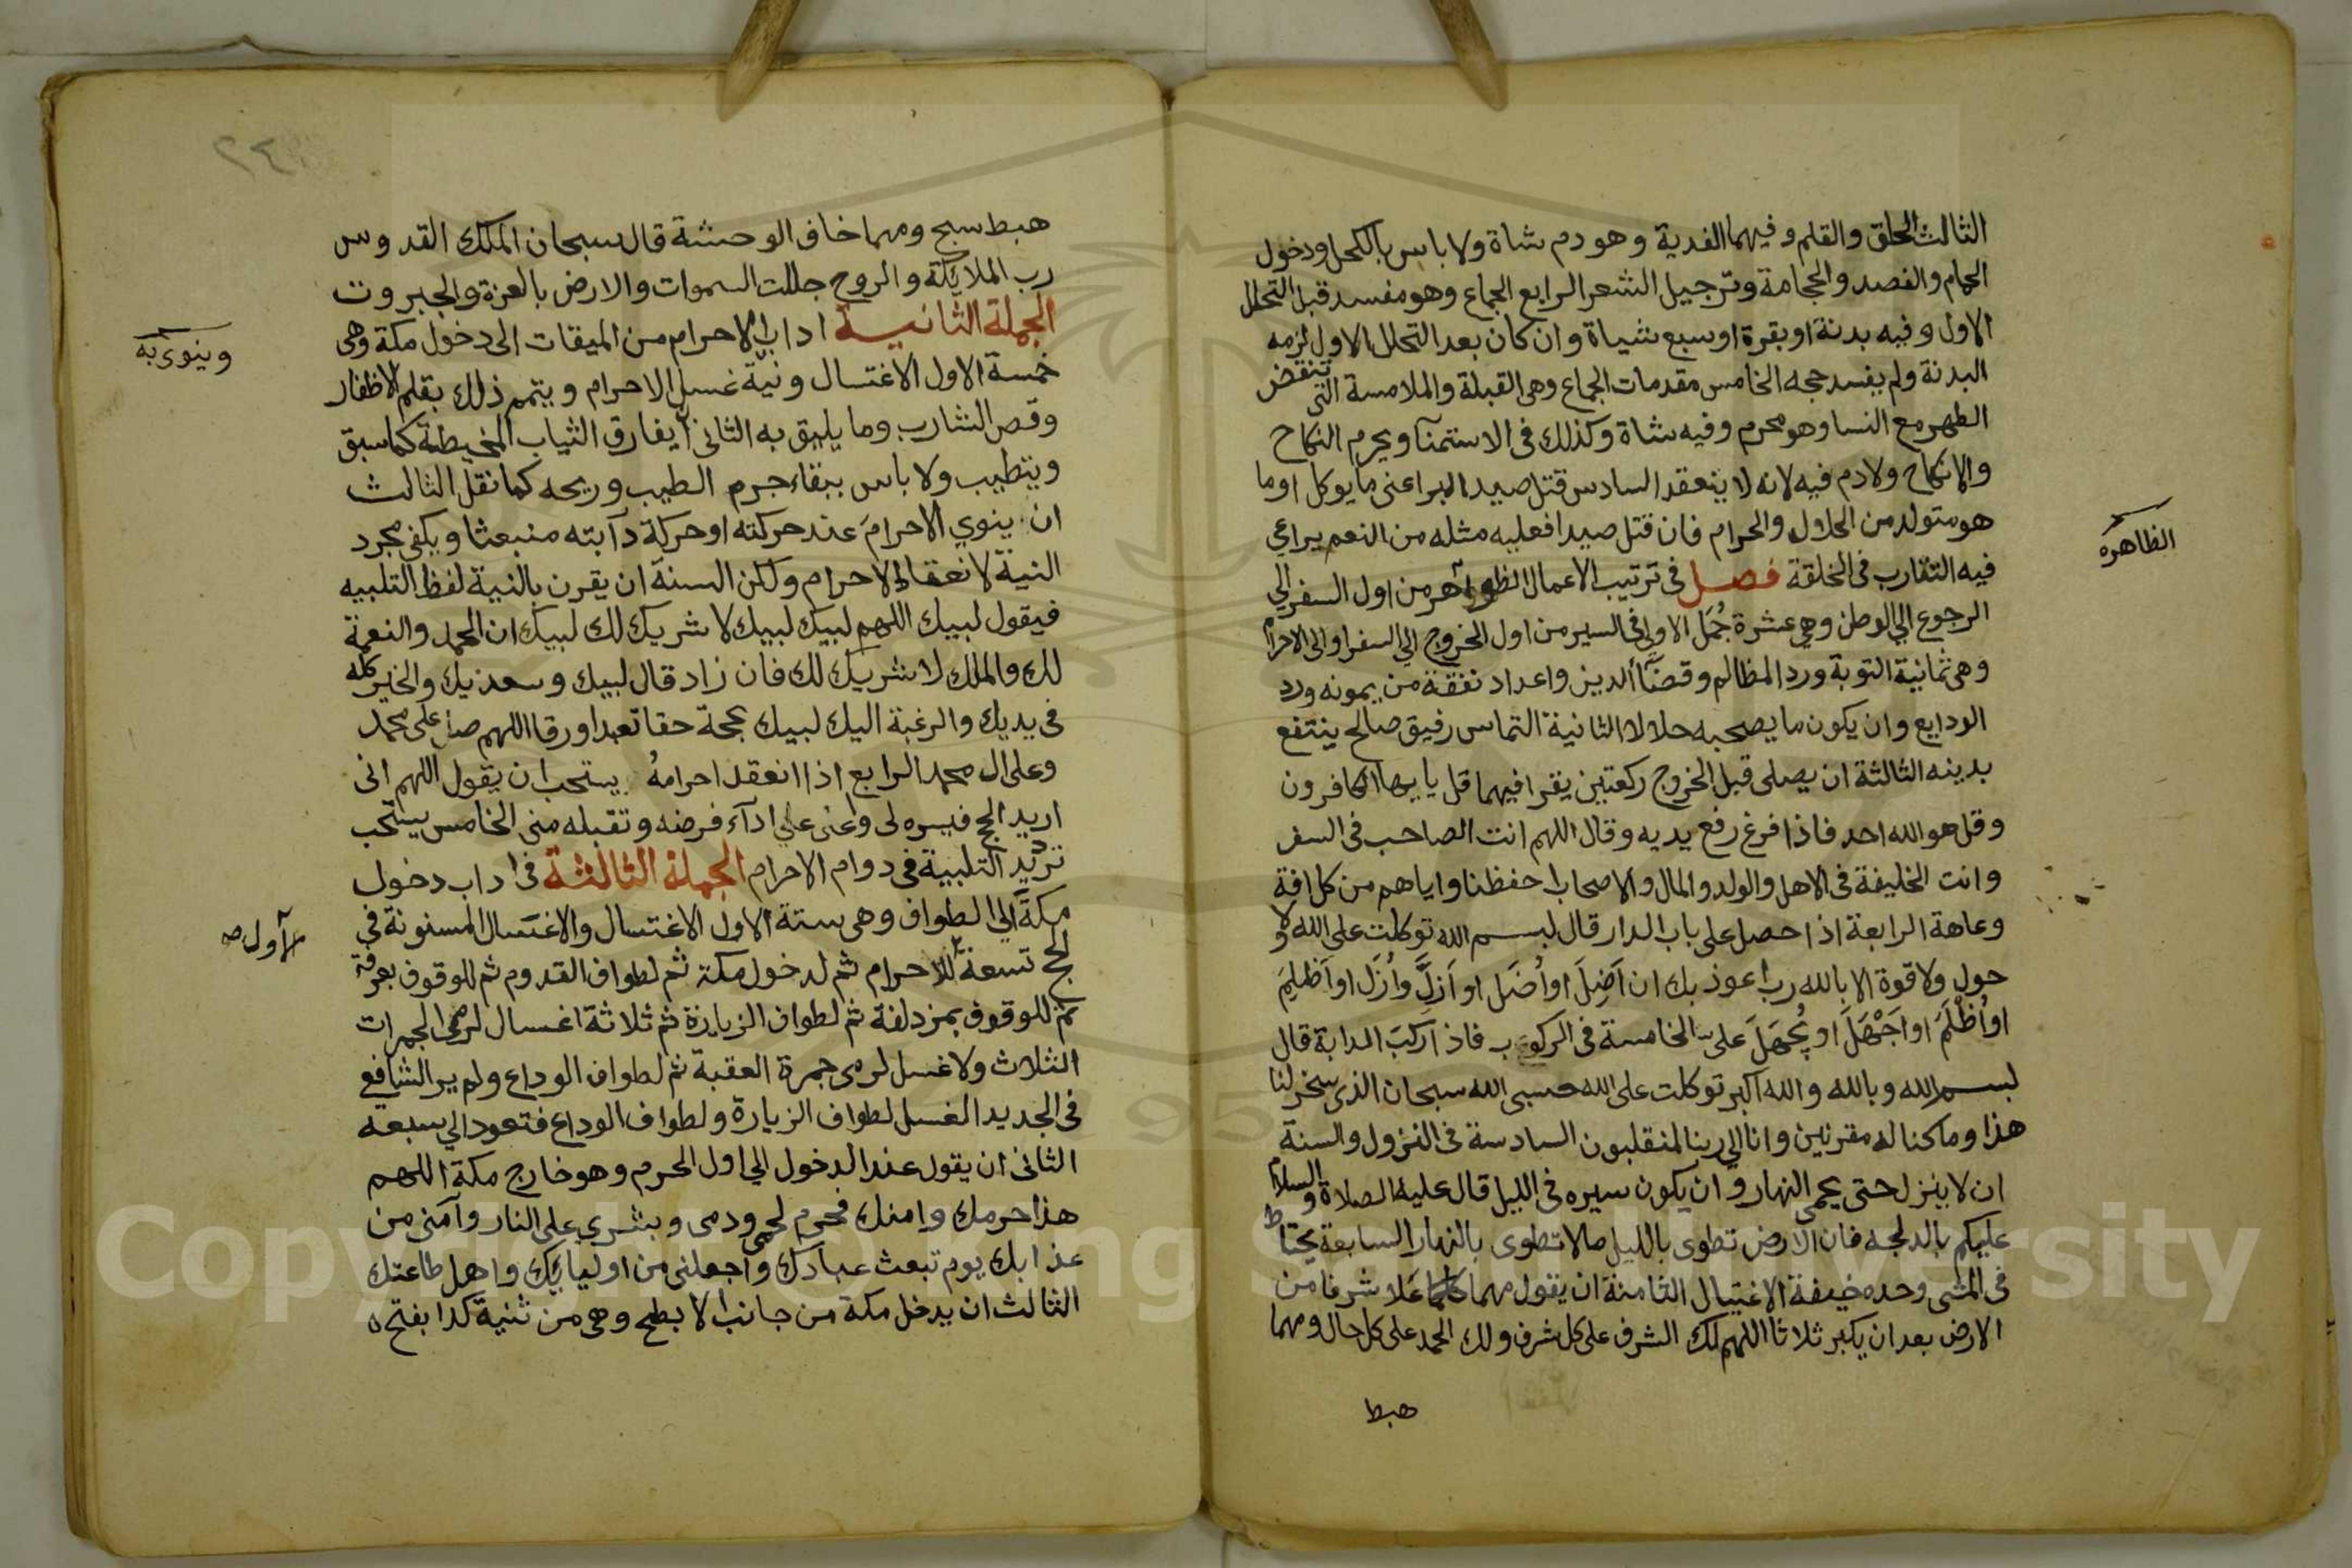 الثالث الحلق والقلم وفيهما الفدية وهو دم شاة ولا باس بالكحل ودخول
الحمام والفصد والحجامة وترجيل الشعر الرابع الجماع وهو مفسد قبل التحلل
الاول وفيه بدنة او بقرة او سبع شياة وان كان بعد التحلل الاول لزمه
البدنة ولم يفسد حجه الخامس مقدمات الجماع وهى القبلة والملامسة التى تنقض
الطهر مع النسا وهو محرم وفيه شاة وكذلك فى الاستمنآ ويحرم النكاح
والانكاح ولا دم فيه لانه لا ينعقد السادس قتل صيد البر اعنى ما يوكل او ما
هو متولد من الحلال والحرام فان قتل صيدا فعليه مثله من النعم يراعي
فيه التقارب فى الخلقة فصل فى ترتيب الاعمال الظواهر من اول السفر الي
الظاهره
الرجوع الي الوطن وهي عشرة جُمَل الاولى فى السير من اول الخروج الي السفر او الى الاحرام
وهى ثمانية التوبة ورد المظالم وقضآ الدين واعداد نفقة من يمونه ورد
الودايع وان يكون ما يصحبه حلالا الثانية التماس رفيق صالح ينتفع
بدينه الثالثة ان يصلى قبل الخروج ركعتين يقرا فيهما قل يا ايها الكافرون
وقل هو الله احد فاذا فرغ رفع يديه وقال اللهم انت الصاحب فى السفر
وانت الخليفة فى الاهل والولد والمال والاصحاب احفظنا واياهم من كل افة
وعاهة الرابعة اذا حصل على باب الدار قال بسم الله توكلت على الله ولا
حول ولا قوة الا بالله رب اعوذ بك ان اَضِلَ او اُضَل او اَزِلَّ واُزَل او اَظلِمَ
او اُظْلَمَ او اَجْهَلَ او يُجهَلَ على الخامسة فى الركوب فاذا ركبَ الدابة قال
بسم الله وبالله والله اكبر توكلت على الله حسبى الله سبحان الذى سخر لنا
هذا وما كنا له مقرنين وانا الي ربنا لمنقلبون السادسة فى النزول والسنة
ان لا ينزل حتى يحمى النهار وان يكون سيره فى الليل قال عليه الصلاة والسلام
عليكم بالدلجه فان الارض تطوى بالليل ما لا تطوى بالنهار السابعة يحتاط
فى المشى وحده خيفة الاغتيال الثامنة ان يقول مهما عَلا شرفا من
الارض بعد ان يكبر ثلاثا اللهم لك الشرف على كل شرف ولك الحمد على كل حال ومهما
هبط
٢٤
هبط سبح ومهما خاف الوحشة قال سبحان الملك القدوس
رب الملائكة والروح جللت السموات والارض بالعزة والجبروت
الجملة الثانية اداب الاحرام من الميقات الى دخول مكة وهى
خمسة الاول الاغتسال ونية غسل الاحرام ويتمم ذلك بقلم الاظفار
وينوى به
وقص الشارب وما يليق به الثانى ان يفارق الثياب المخيطة كما سبق
ويتطيب ولا باس ببقاء جرم الطيب وريحه كما نقل الثالث
ان ينوي الاحرامَ عند حركته او حركة دآبته منبعثا ويكفى مجرد
النية لانعقاد الاحرام ولكن السنة ان يقرن بالنية لفظ التلبيه
فيقول لبيك اللهم لبيك لبيك لا شريك لك لبيك ان الحمد والنعمة
لك والملك لا شريك لك فان زاد قال لبيك وسعديك والخير كله
فى يديك والرغبة اليك لبيك بحجة حقا تعبدا ورقا اللهم صل على محمد
وعلى ال محمد الرابع اذا انعقد احرامهُ يستحب ان يقول اللهم انى
اريد الحج فيسره لى واعنى علي ادآء فرضه وتقبله منى الخامس يستحب
ترديد التلبية فى دوام الاحرام الجملة الثالثة فى اداب دخول
مكة الي الطواف وهى ستة الاول الاغتسال والاغتسال المسنونة فى
الحج تسعة للاحرام ثم لدخول مكة ثم لطواف القدوم ثم للوقوف بعرفة
ثم للوقوف بمزدلفة ثم لطواف الزيارة ثم ثلاثة اغسال لرمى الجمرات
الثلاث ولا غسل لرمى جمرة العقبة ثم لطواف الوداع ولم ير الشافعي
فى الجديد الغسل لطواف الزيارة ولطواف الوداع فتعود الي سبعه
الثانى ان يقول عند الدخول الي اول الحرم وهو خارج مكة اللهم
هذا حرمك وامنك فحرم لحمى ودمى وبشرى على النار وآمنى من
عذابك يوم تبعث عبادك واجعلنى من اوليايك واهل طاعتك
الثالث ان يدخل مكة من جانب الابطح وهى من ثنية كدا بفتح
Copyright © King Saud University